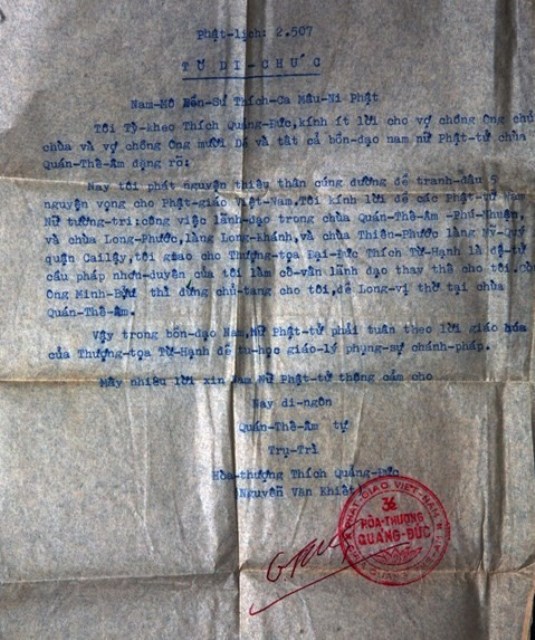 Phật-lịch: 2.507
TỜ DI-CHÚC
Nam-Mô Bổn-Sư Thích-Ca Mâu-Ni Phật
Tôi Tỳ-kheo Thích Quảng-Đức,kính ít lời cho vợ chồng Ông chủ
chùa và vợ chồng Ông mười Đề và tất cả bổn-đạo nam nữ Phật-tử chùa
Quán-Thế-Âm đặng rõ:
Nay tôi phát nguyện thiêu thân cúng dường để tranh-đấu 5
nguyện vọng cho Phật-giáo Việt-Nam.Tôi kính lời để các Phật-tử Nam
Nữ tường-tri:công việc lãnh-đạo trong chùa Quán-Thế-Âm -Phú-Nhuận,
và chùa Long-Phước,làng Long-Khánh,và chùa Thiên-Phước làng Mỹ-Quý
quận Cailậy,tôi giao cho Thượng-tọa Đại-Đức Thích Từ-Hạnh là đệ-tử
cầu pháp nhơn-duyên của tôi làm cố-vấn lãnh đạo thay thế cho tôi.Còn
Ông Minh-Bửu thì đứng chủ-tang cho tôi,để Long-vị thờ tại chùa
Quán-Thế-Âm.
Vậy trong bổn-đạo Nam,Nữ Phật-tử phải tuân theo lời giáo hóa
của Thượng-tọa Từ-Hạnh để tu-học giáo-lý phụng-sự chánh-pháp.
Mấy nhiêu lời xin Nam Nữ Phật-tử thông cảm cho
Nay di-ngôn
Quán-Thế-Âm tự
Trụ-Trì
Hòa-thượng Thích Quảng-Đức
(Nguyễn Văn Khiết)
PHẬT-GIÁO VIỆT-NAM
HÒA-THƯỢNG
QUẢNG-ĐỨC